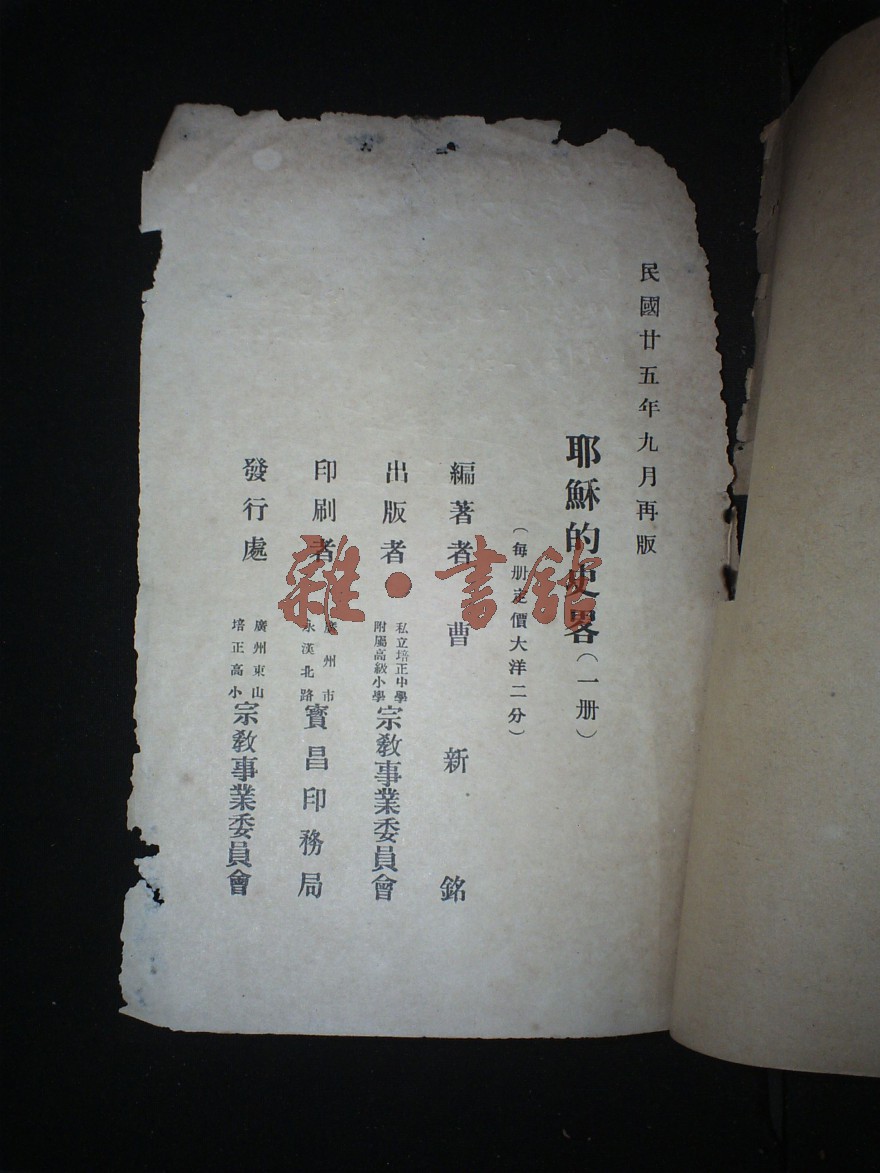 民國廿五年九月再版
耶穌的史畧(一册)
(每册定價大洋二分)
編著者 曹新銘
出版者 私立培正中學附屬高級小學 宗教事業委員會
印刷者 廣州市永漢北路 寶昌印務局
發行處 廣州東山培正高小 宗教事業委員會
雜·書館